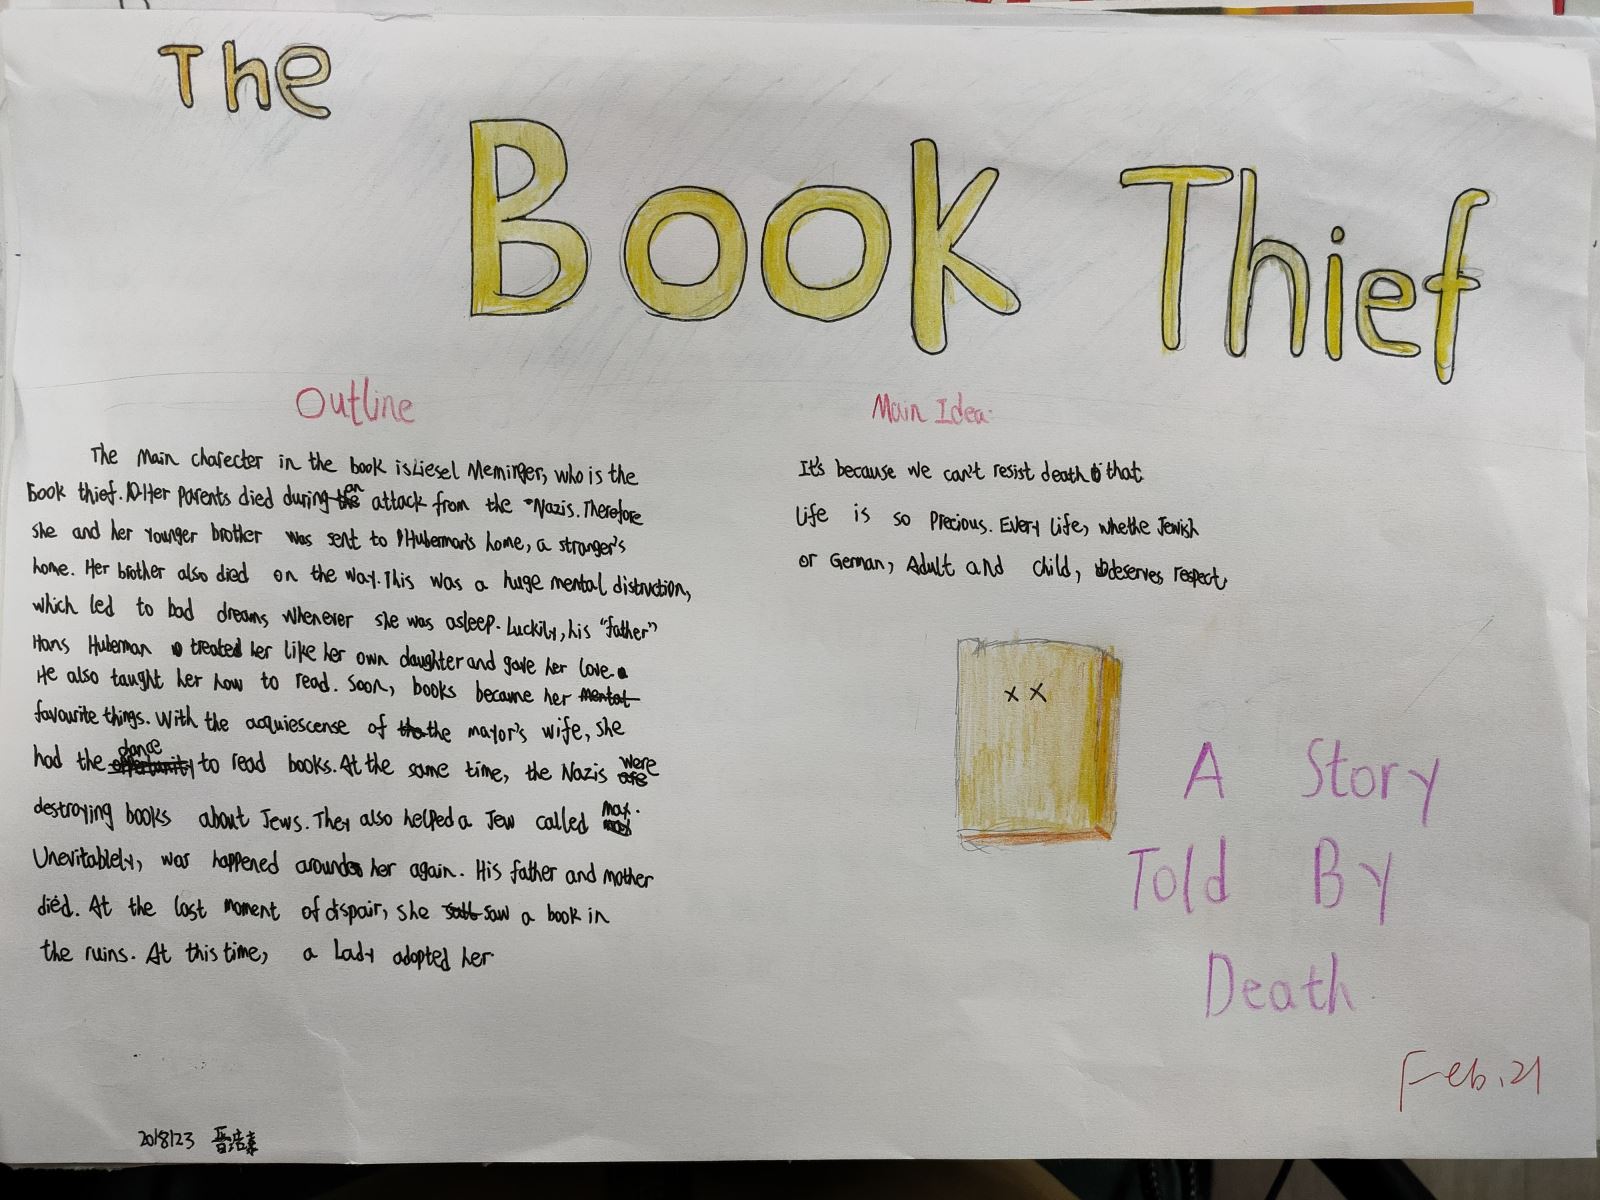 The
Book Thief
Outline
The Main charecter in the book is Liesel Meminger, who is the
Book thief. Her parents died during an attack from the Nazis. Therefore
she and her younger brother was sent to Huberman's home, a stranger's
home. Her brother also died on the way. This was a huge mental distruction,
which led to bad dreams whenever she was asleep. Luckily, his "father"
Hans Huberman treated her like her own daughter and gave her love.
He also taught her how to read. Soon, books became her mental
favourite things. With the acquiescense of the the mayor's wife, she
had the chance to read books. At the same time, the Nazis were
destroying books about Jews. They also helped a Jew called Max.
Unevitablely, was happened around her again. His father and mother
died. At the last moment of dispair, she saw a book in
the ruins. At this time, a Lady adopted her
Main Idea:
It's because we can't resist death that
Life is so Precious. Every life, whethe Jewish
or German, Adult and child, deserves respect,
x x
A Story
Told By
Death
Feb.21
2018123